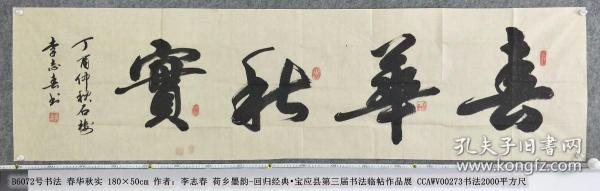 春華秋實
丁酉仲秋石樵
李志春书
孔夫子旧书网
B6072号书法 春华秋实 180×50cm 作者：李志春 荷乡墨韵-回归经典•宝应县第三届书法临帖作品展 CCAWV00273书法2000平方尺